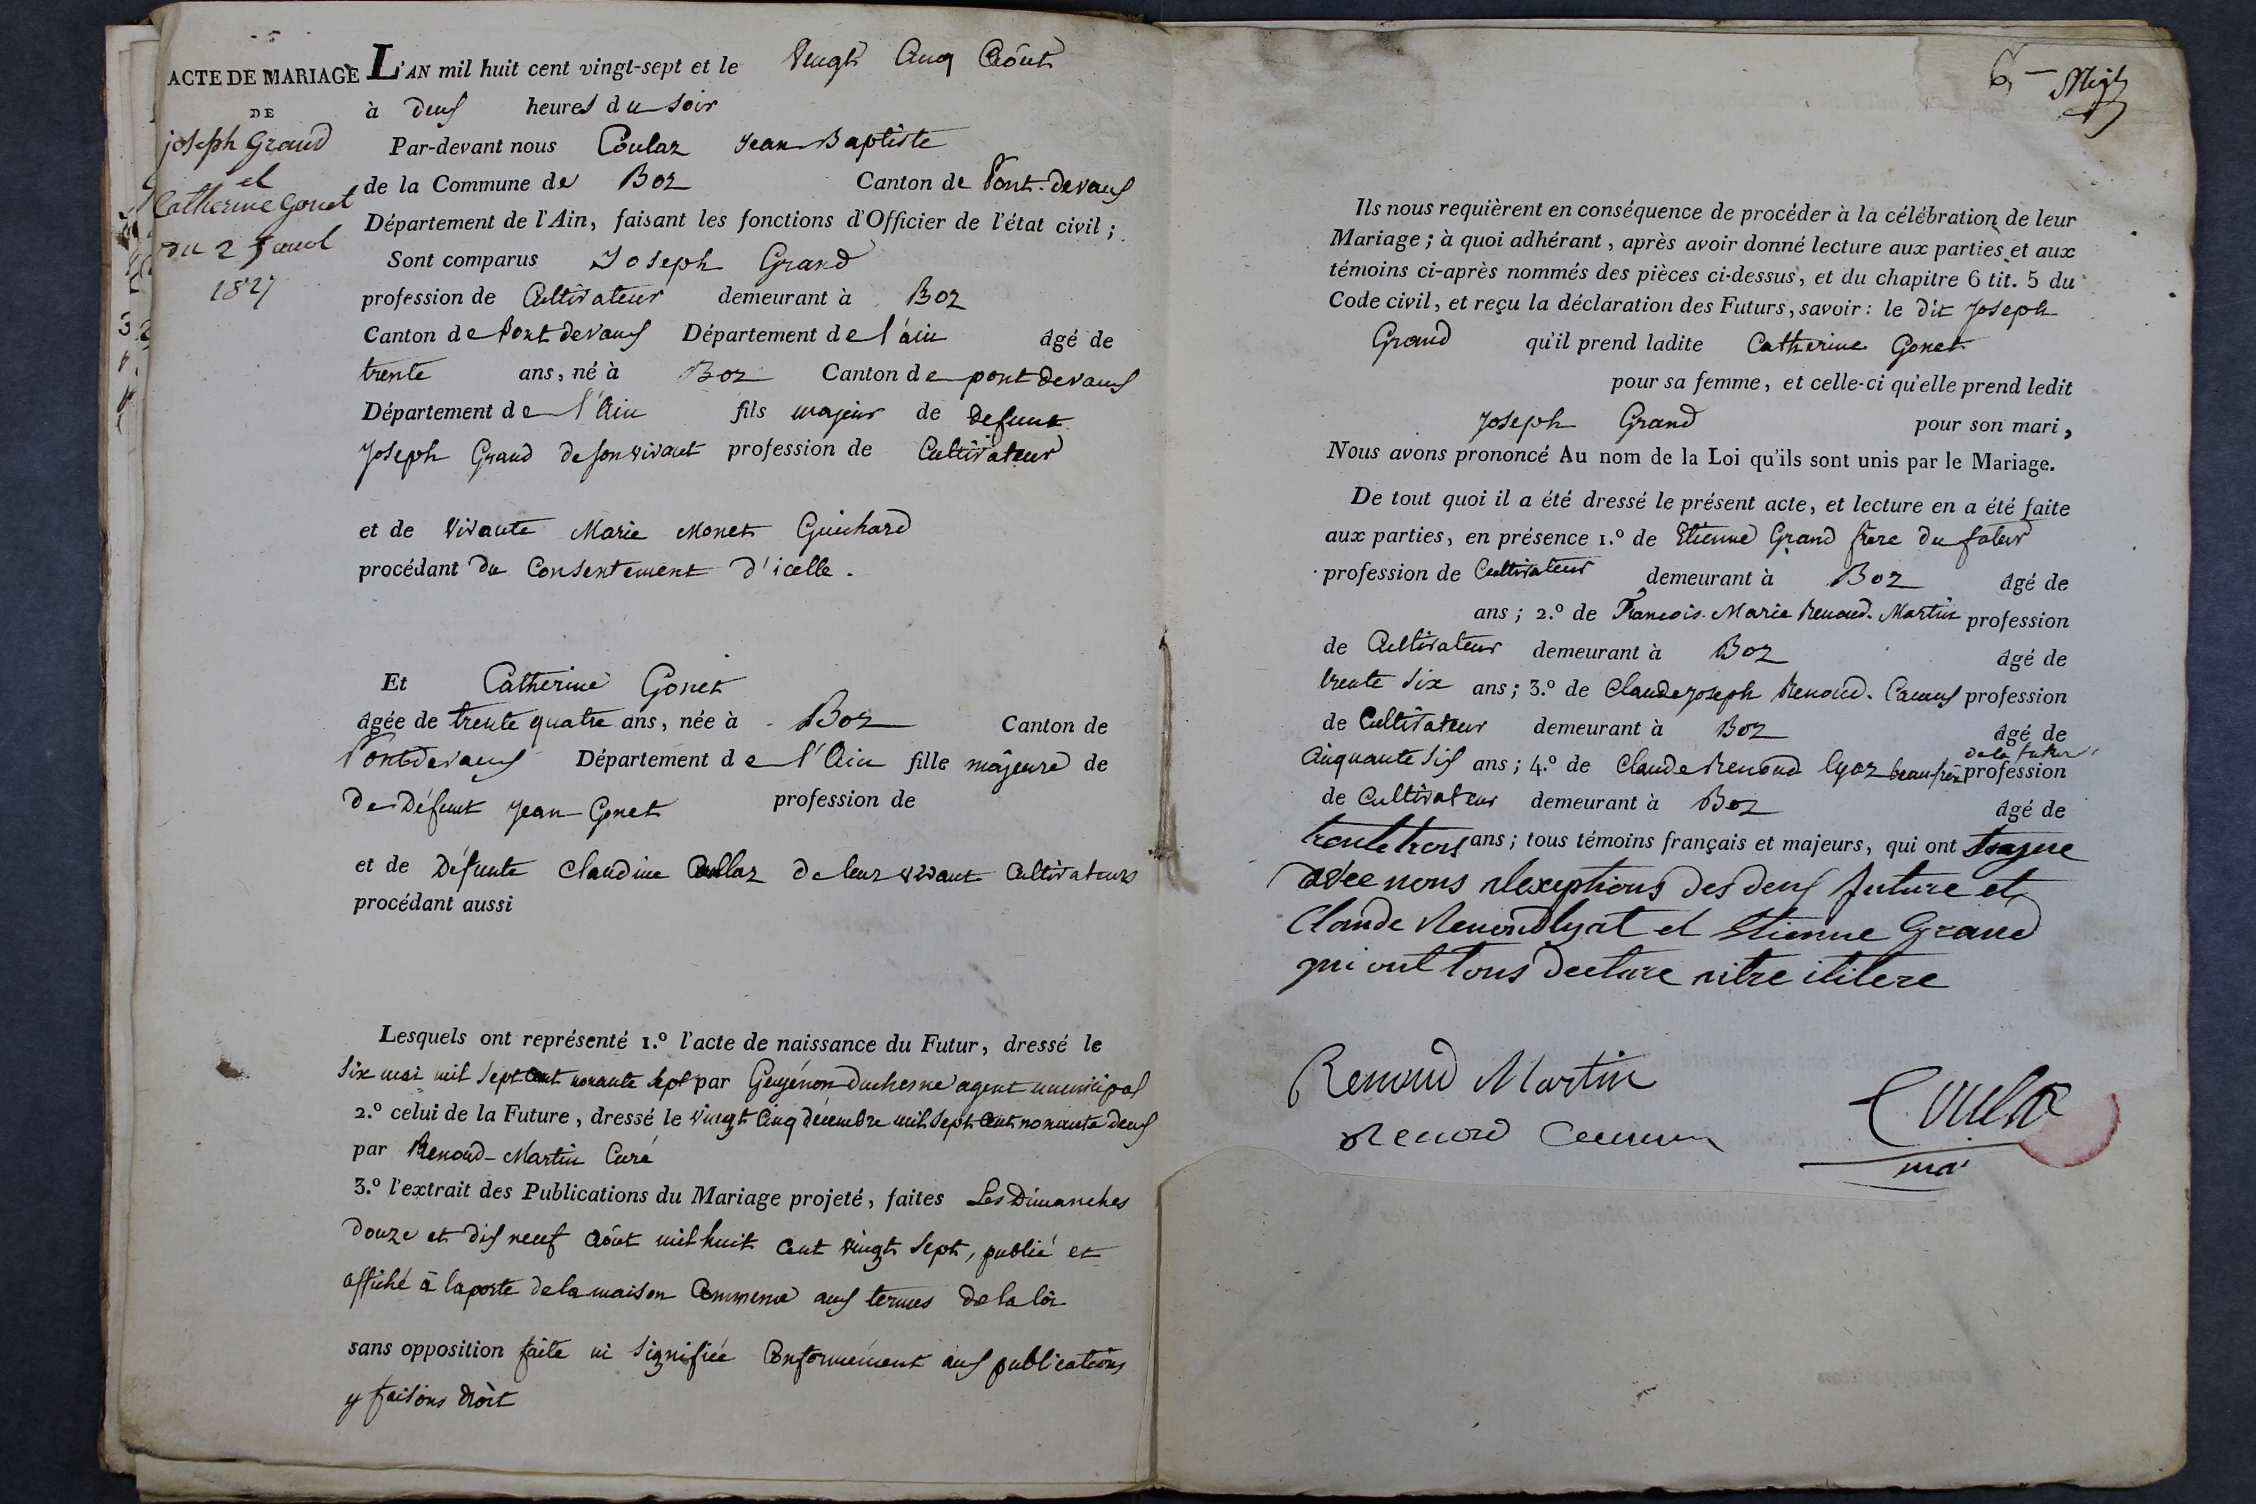 ACTE DE MARIAGE
DE
joseph Grand
et
Catherine Gonet
du 25 aout
1827
L'AN mil huit cent vingt-sept et le Vingt Cinq Août
à deux heures du soir
Par-devant nous Coulaz Jean Baptiste
de la Commune de Boz Canton de Pont-devaux
Département de l'Ain, faisant les fonctions d'Officier de l'état civil;
Sont comparus Joseph Grand
profession de Cultivateur demeurant à Boz
Canton de Pont devaux Département de l'ain âgé de
trente ans, né à Boz Canton de pont devaux
Département de l'Ain fils majeur de defunt
Joseph Grand de son vivant profession de Cultivateur
et de vivante Marie Monet Guichard
procédant du Consentement d'icelle.
Et Catherine Gonet
âgée de trente quatre ans, née à Boz Canton de
Pontdevaux Département de l'Ain fille majeure de
de Défunt Jean Gonet profession de
et de Défunte Claudine Coullaz de leur vivant Cultivateurs
procédant aussi
Lesquels ont représenté 1.º l'acte de naissance du Futur, dressé le
six mai mil sept cent nonante sept par Guyénon Duchesne agent municipal
2.º celui de la Future, dressé le vingt Cinq décembre mil sept Cent nonante deux
par Renoud-Martin Curé
3.º l'extrait des Publications du Mariage projeté, faites Les Dimanches
Douze et dix neuf Août mil huit Cent vingt Sept, publié et
affiché à la porte de la maison Commune aux termes de la loi
sans opposition faite ni Signifiée Conformément aux publications
y faisons droit
6
Ils nous requièrent en conséquence de procéder à la célébration de leur
Mariage; à quoi adhérant, après avoir donné lecture aux parties et aux
témoins ci-après nommés des pièces ci-dessus, et du chapitre 6 tit. 5 du
Code civil, et reçu la déclaration des Futurs, savoir: le dit Joseph
Grand qu'il prend ladite Catherine Gonet
pour sa femme, et celle-ci qu'elle prend ledit
Joseph Grand pour son mari,
Nous avons prononcé Au nom de la Loi qu'ils sont unis par le Mariage.
De tout quoi il a été dressé le présent acte, et lecture en a été faite
aux parties, en présence 1.º de Etienne Grand frère du futur
profession de Cultivateur demeurant à Boz âgé de
ans; 2.º de François-Marie Renoud-Martin profession
de Cultivateur demeurant à Boz âgé de
trente six ans; 3.º de Claude joseph Renoud-Camus profession
de Cultivateur demeurant à Boz âgé de
de la future
Cinquante six ans; 4.º de Claude Renoud lyaz beau frère profession
de Cultivateur demeurant à Boz âgé de
trente trois ans; tous témoins français et majeurs, qui ont
avec nous des deux future et
Claude Renoud lyat et Etienne Grand
qui ont tous declare nitre ilitere
Renoud Martin
Renoud
Coulaz
mai